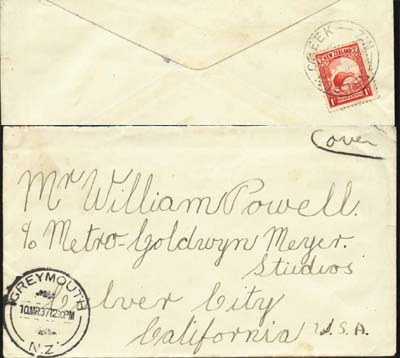 CREEK N.Z
NEW ZEALAND
1D 1D
Cover
Mr William Powell.
c/o Metro-Goldwyn Meyer.
Studios
Culver City
California U.S.A.
GREYMOUTH
10MR37 12 30PM
N.Z.